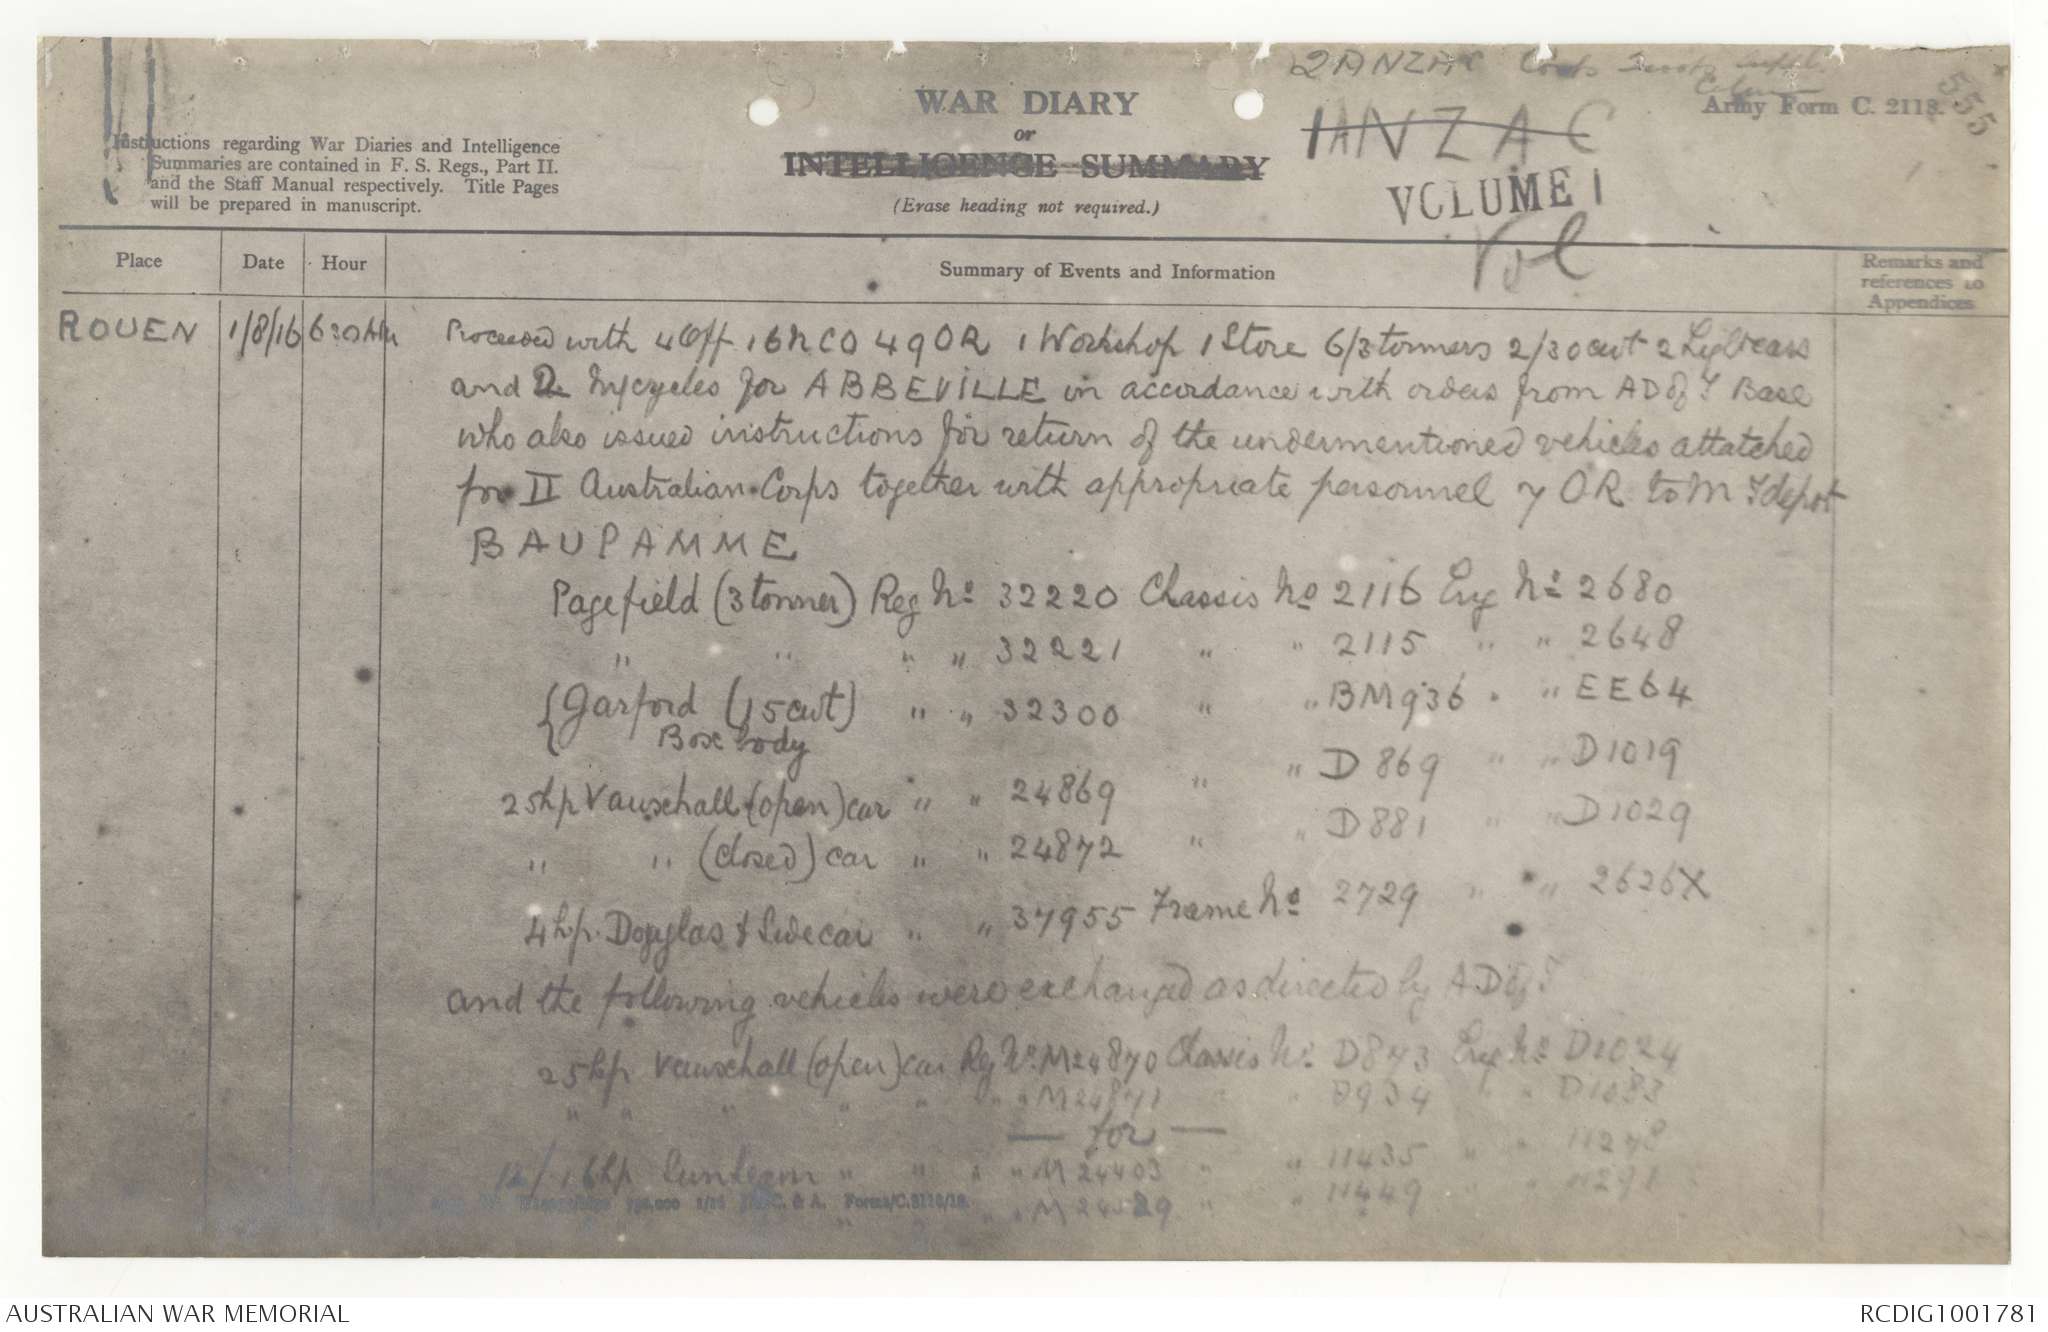 2 ANZAC Corps Troops Supply
Column
555
WAR DIARY
or
INTELLIGENCE SUMMARY
(Erase heading not required.)
Army Form C. 2118.
1 ANZAC
VOLUME 1
Vol
Instructions regarding War Diaries and Intelligence
Summaries are contained in F. S. Regs., Part II.
and the Staff Manual respectively. Title Pages
will be prepared in manuscript.
Place Date Hour Summary of Events and Information Remarks and references to Appendices
ROUEN 1/8/16 6 30 AM Proceeded with 4 Off 16 NCO 49 OR 1 Workshop 1 Store 6/3 tonners 2/30 cwt 2 Light cars
and 2 M/cycles for ABBEVILLE in accordance with orders from AD of T Base
who also issued instructions for return of the undermentioned vehicles attatched
for II Australian Corps together with appropriate personnel 7 OR to M T depot
BAUPAMME
Pagefield (3 tonner) Reg No 32220 Chassis No 2116 Eng No 2680
" " " " 32221 " " 2115 " " 2648
{Garford (15 cwt) " " 32300 " " BM936 " " EE64
Box body
25hp Vauxhall (open) car " " 24869 " " D 869 " " D1019
" " (closed) car " " 24872 " " D881 " " D1029
4hp. Douglas & Sidecar " " 37955 Frame No 2729 " " 2626X
and the following vehicles were exchanged as directed by AD of T
25hp Vauxhall (open) car Reg No M24870 Chassis No D873 Eng No D1024
" " " " " " " M24871 " " D934 " " D1083
— for —
12/16hp Sunbeam " " " " M 24403 " " 11435 " " 11278
" " " M " " 11449 " " 11291
Forms/C.2118/12.
AUSTRALIAN WAR MEMORIAL
RCDIG1001781